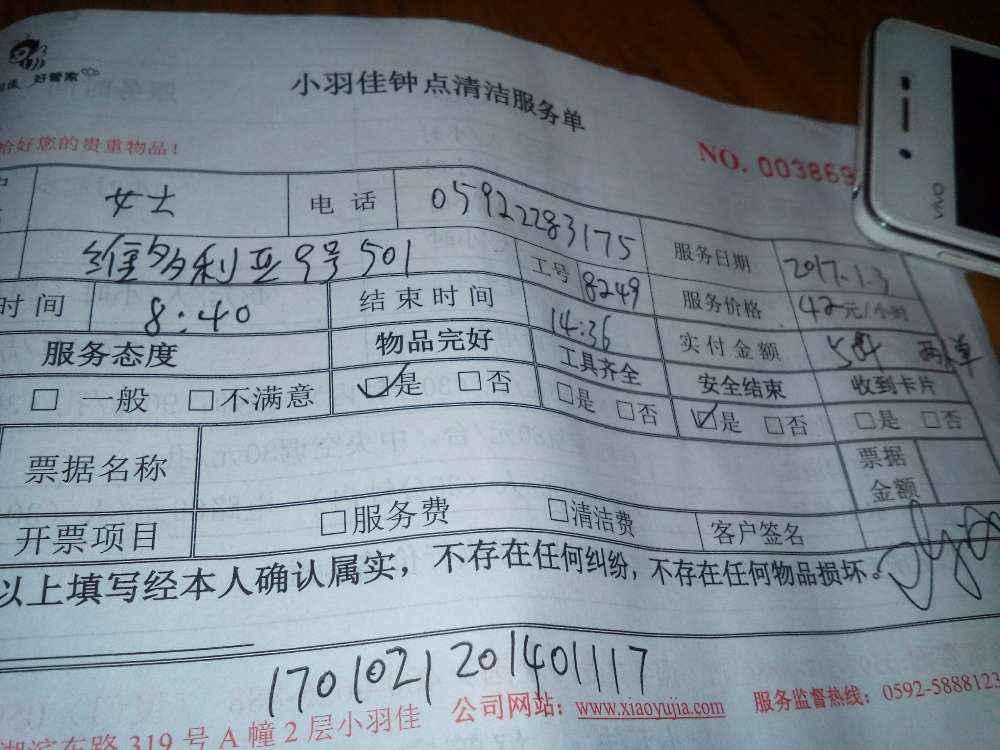 好管家
小羽佳钟点清洁服务单
好您的贵重物品！
NO. 003869
女士 电话 05922283175 服务日期 2017.1.3
维多利亚9号501 工号 8249 服务价格 42元/小时
时间 8:40 结束时间 14:36 实付金额 两单
服务态度 物品完好 工具齐全 安全结束 收到卡片
□ 一般 □不满意 ☑是 □否 □是 □否 ☑是 □否 □是 □否
票据名称 票据金额
开票项目 □服务费 □清洁费 客户签名
以上填写经本人确认属实，不存在任何纠纷，不存在任何物品损坏。
170102120140 1117
滨东路319号A幢2层小羽佳 公司网站：www.xiaoyujia.com 服务监督热线：0592-5888123
vivo